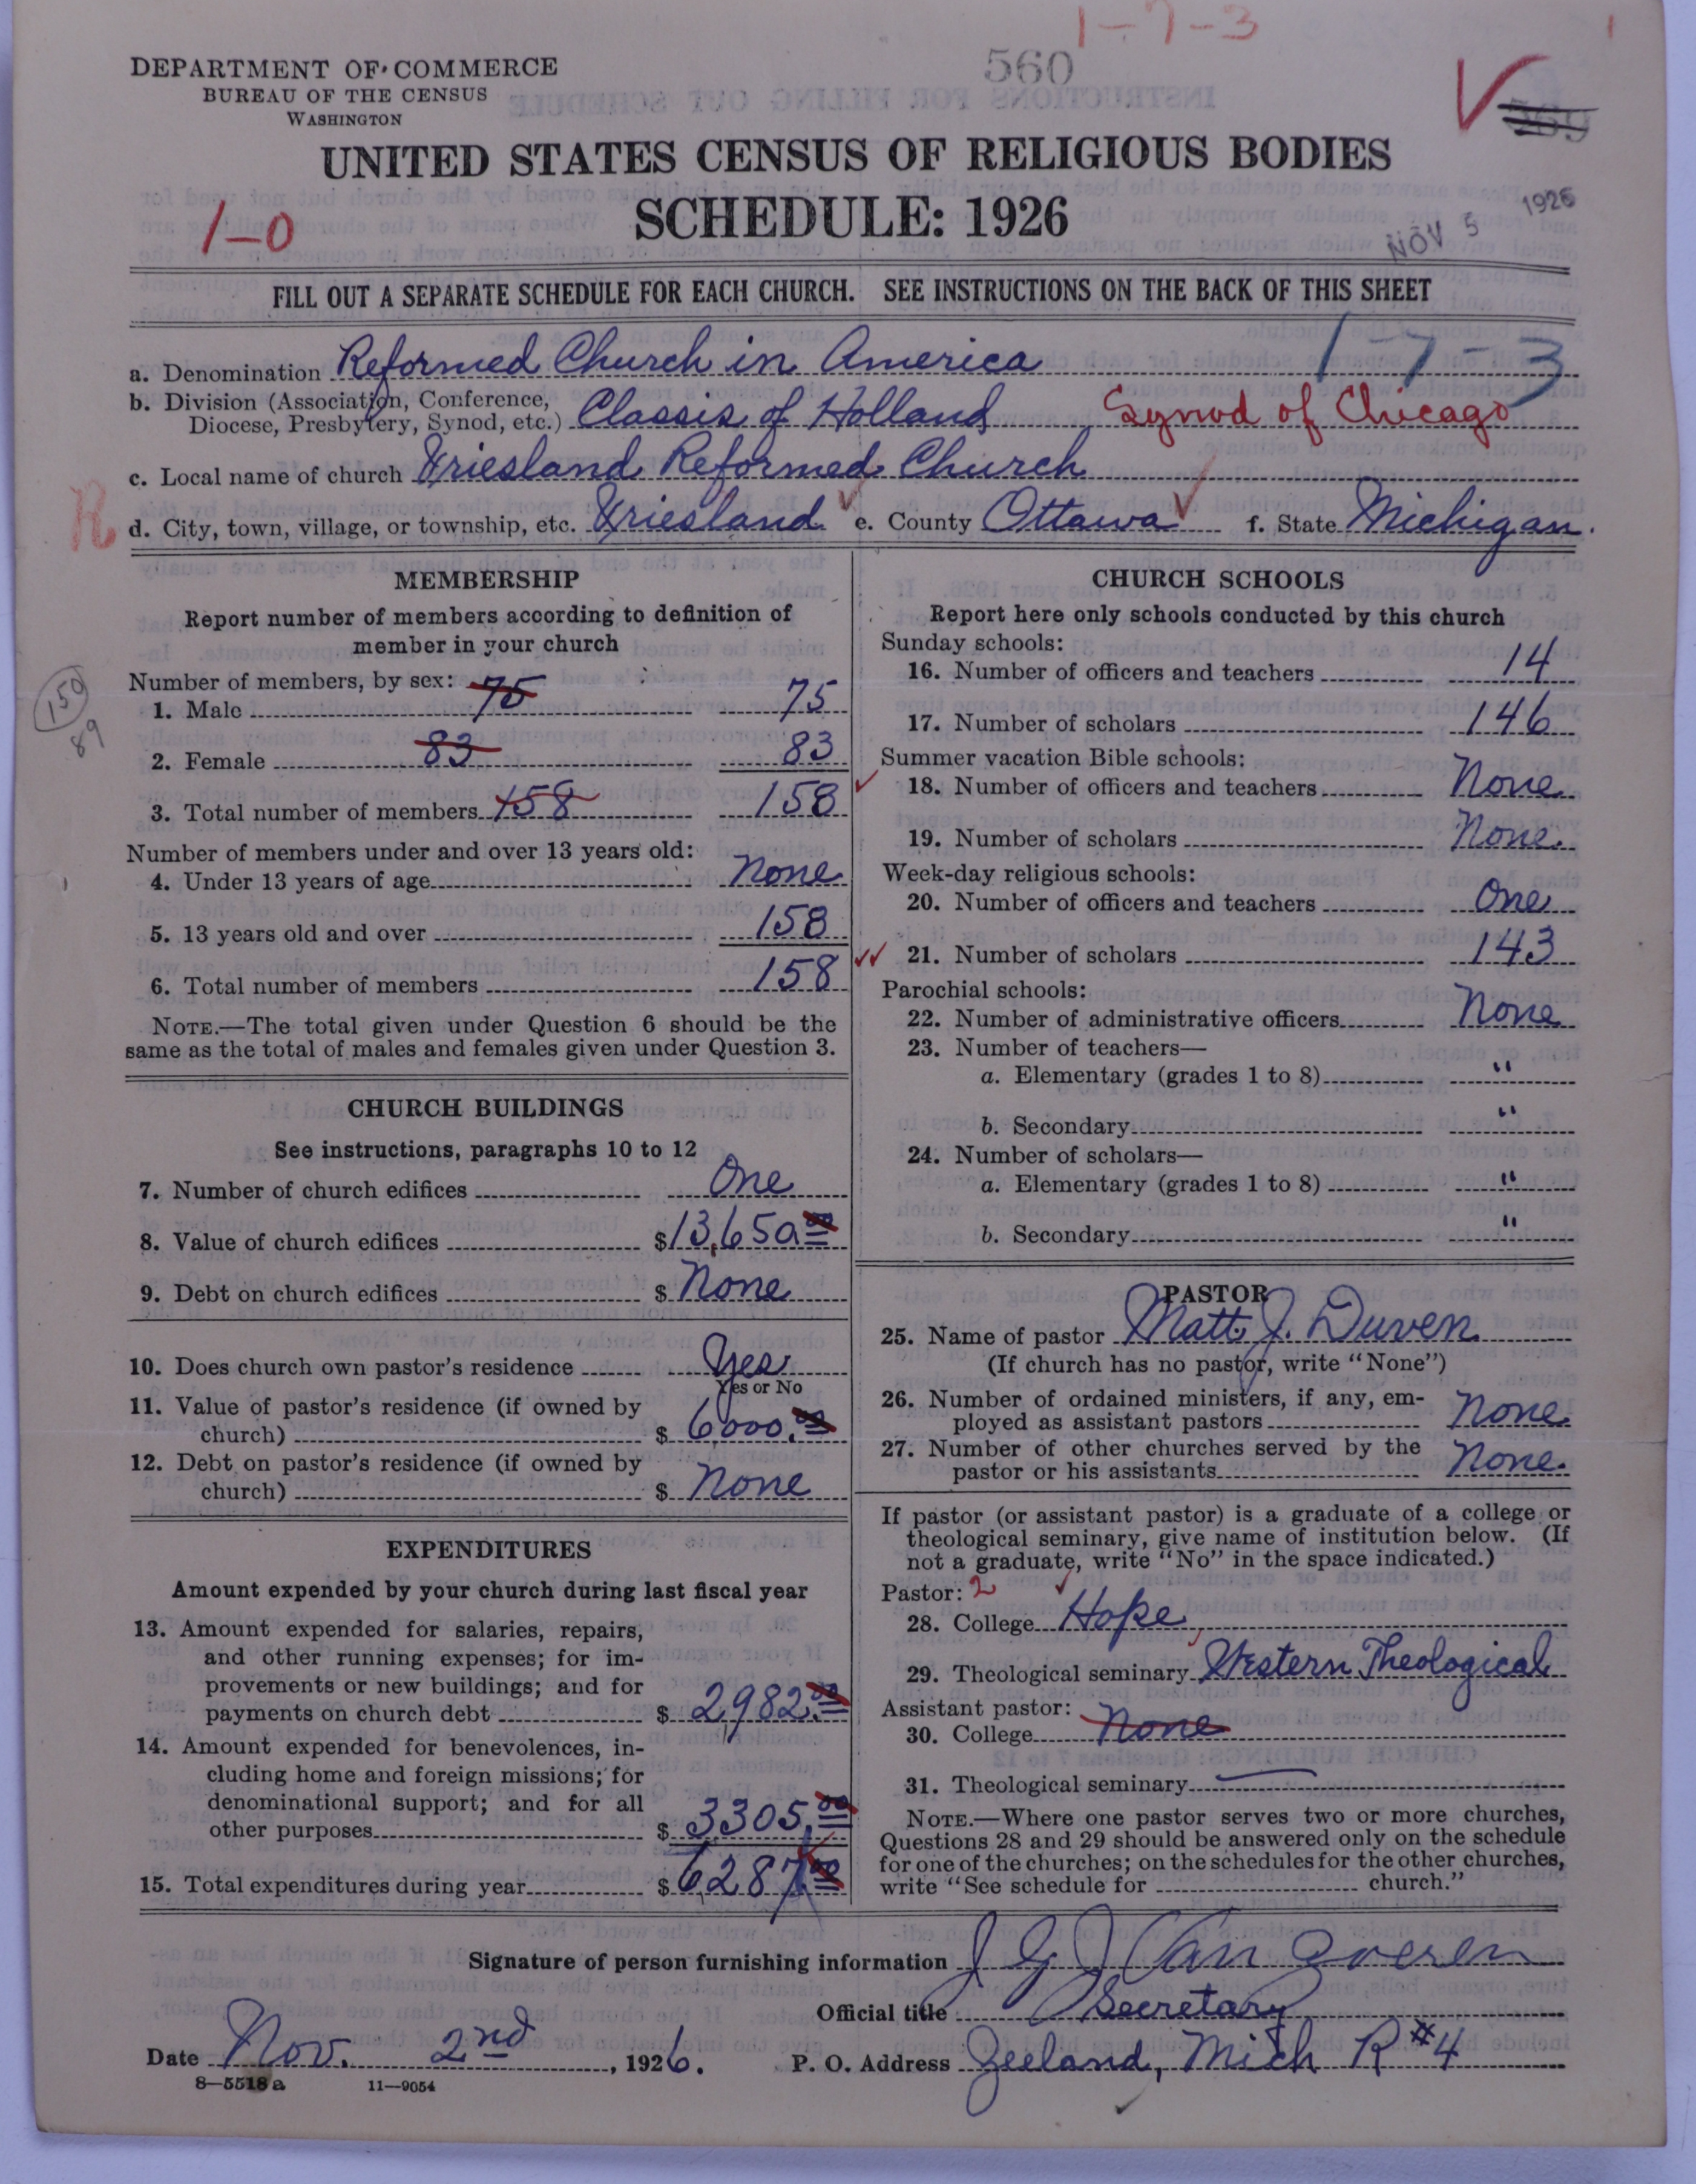 1-7-3
DEPARTMENT OF COMMERCE
BUREAU OF THE CENSUS
WASHINGTON
560
569
UNITED STATES CENSUS OF RELIGIOUS BODIES
SCHEDULE: 1926
1-0
NOV 5 1926
FILL OUT A SEPARATE SCHEDULE FOR EACH CHURCH. SEE INSTRUCTIONS ON THE BACK OF THIS SHEET
1-7-3
a. Denomination Reformed Church in America
b. Division (Association, Conference, Diocese, Presbytery, Synod, etc.) Classis of Holland Synod of Chicago
c. Local name of church Vriesland Reformed Church
R
d. City, town, village, or township, etc. Vriesland e. County Ottawa f. State Michigan.
MEMBERSHIP
Report number of members according to definition of
member in your church
Number of members, by sex:
150
89
1. Male 75 75
2. Female 83 83
3. Total number of members 158 158
Number of members under and over 13 years old:
4. Under 13 years of age None
5. 13 years old and over 158
6. Total number of members 158
NOTE.—The total given under Question 6 should be the
same as the total of males and females given under Question 3.
CHURCH BUILDINGS
See instructions, paragraphs 10 to 12
7. Number of church edifices One
8. Value of church edifices $13,650.00
9. Debt on church edifices $ None
10. Does church own pastor's residence Yes
Yes or No
11. Value of pastor's residence (if owned by
church) $ 6000.00
12. Debt on pastor's residence (if owned by
church) $ None
EXPENDITURES
Amount expended by your church during last fiscal year
13. Amount expended for salaries, repairs,
and other running expenses; for im-
provements or new buildings; and for
payments on church debt $ 2982.00
14. Amount expended for benevolences, in-
cluding home and foreign missions; for
denominational support; and for all
other purposes $ 3305.00
15. Total expenditures during year $ 6287.00
CHURCH SCHOOLS
Report here only schools conducted by this church
Sunday schools:
16. Number of officers and teachers 14
17. Number of scholars 146
Summer vacation Bible schools:
18. Number of officers and teachers None
19. Number of scholars None.
Week-day religious schools:
20. Number of officers and teachers One
21. Number of scholars 143
Parochial schools:
22. Number of administrative officers None
23. Number of teachers—
a. Elementary (grades 1 to 8) "
b. Secondary "
24. Number of scholars—
a. Elementary (grades 1 to 8) "
b. Secondary "
PASTOR
25. Name of pastor Matt J. Duven
(If church has no pastor, write "None")
26. Number of ordained ministers, if any, em-
ployed as assistant pastors None.
27. Number of other churches served by the
pastor or his assistants None.
If pastor (or assistant pastor) is a graduate of a college or
theological seminary, give name of institution below. (If
not a graduate, write "No" in the space indicated.)
Pastor: 2
28. College Hope
29. Theological seminary Western Theological
Assistant pastor:
30. College None
31. Theological seminary
NOTE.—Where one pastor serves two or more churches,
Questions 28 and 29 should be answered only on the schedule
for one of the churches; on the schedules for the other churches,
write "See schedule for church."
Signature of person furnishing information J G J Van Zoeren
Official title Secretary
Date Nov. 2nd, 1926. P. O. Address Zeeland, Mich R #4
8—5518 a 11—9054